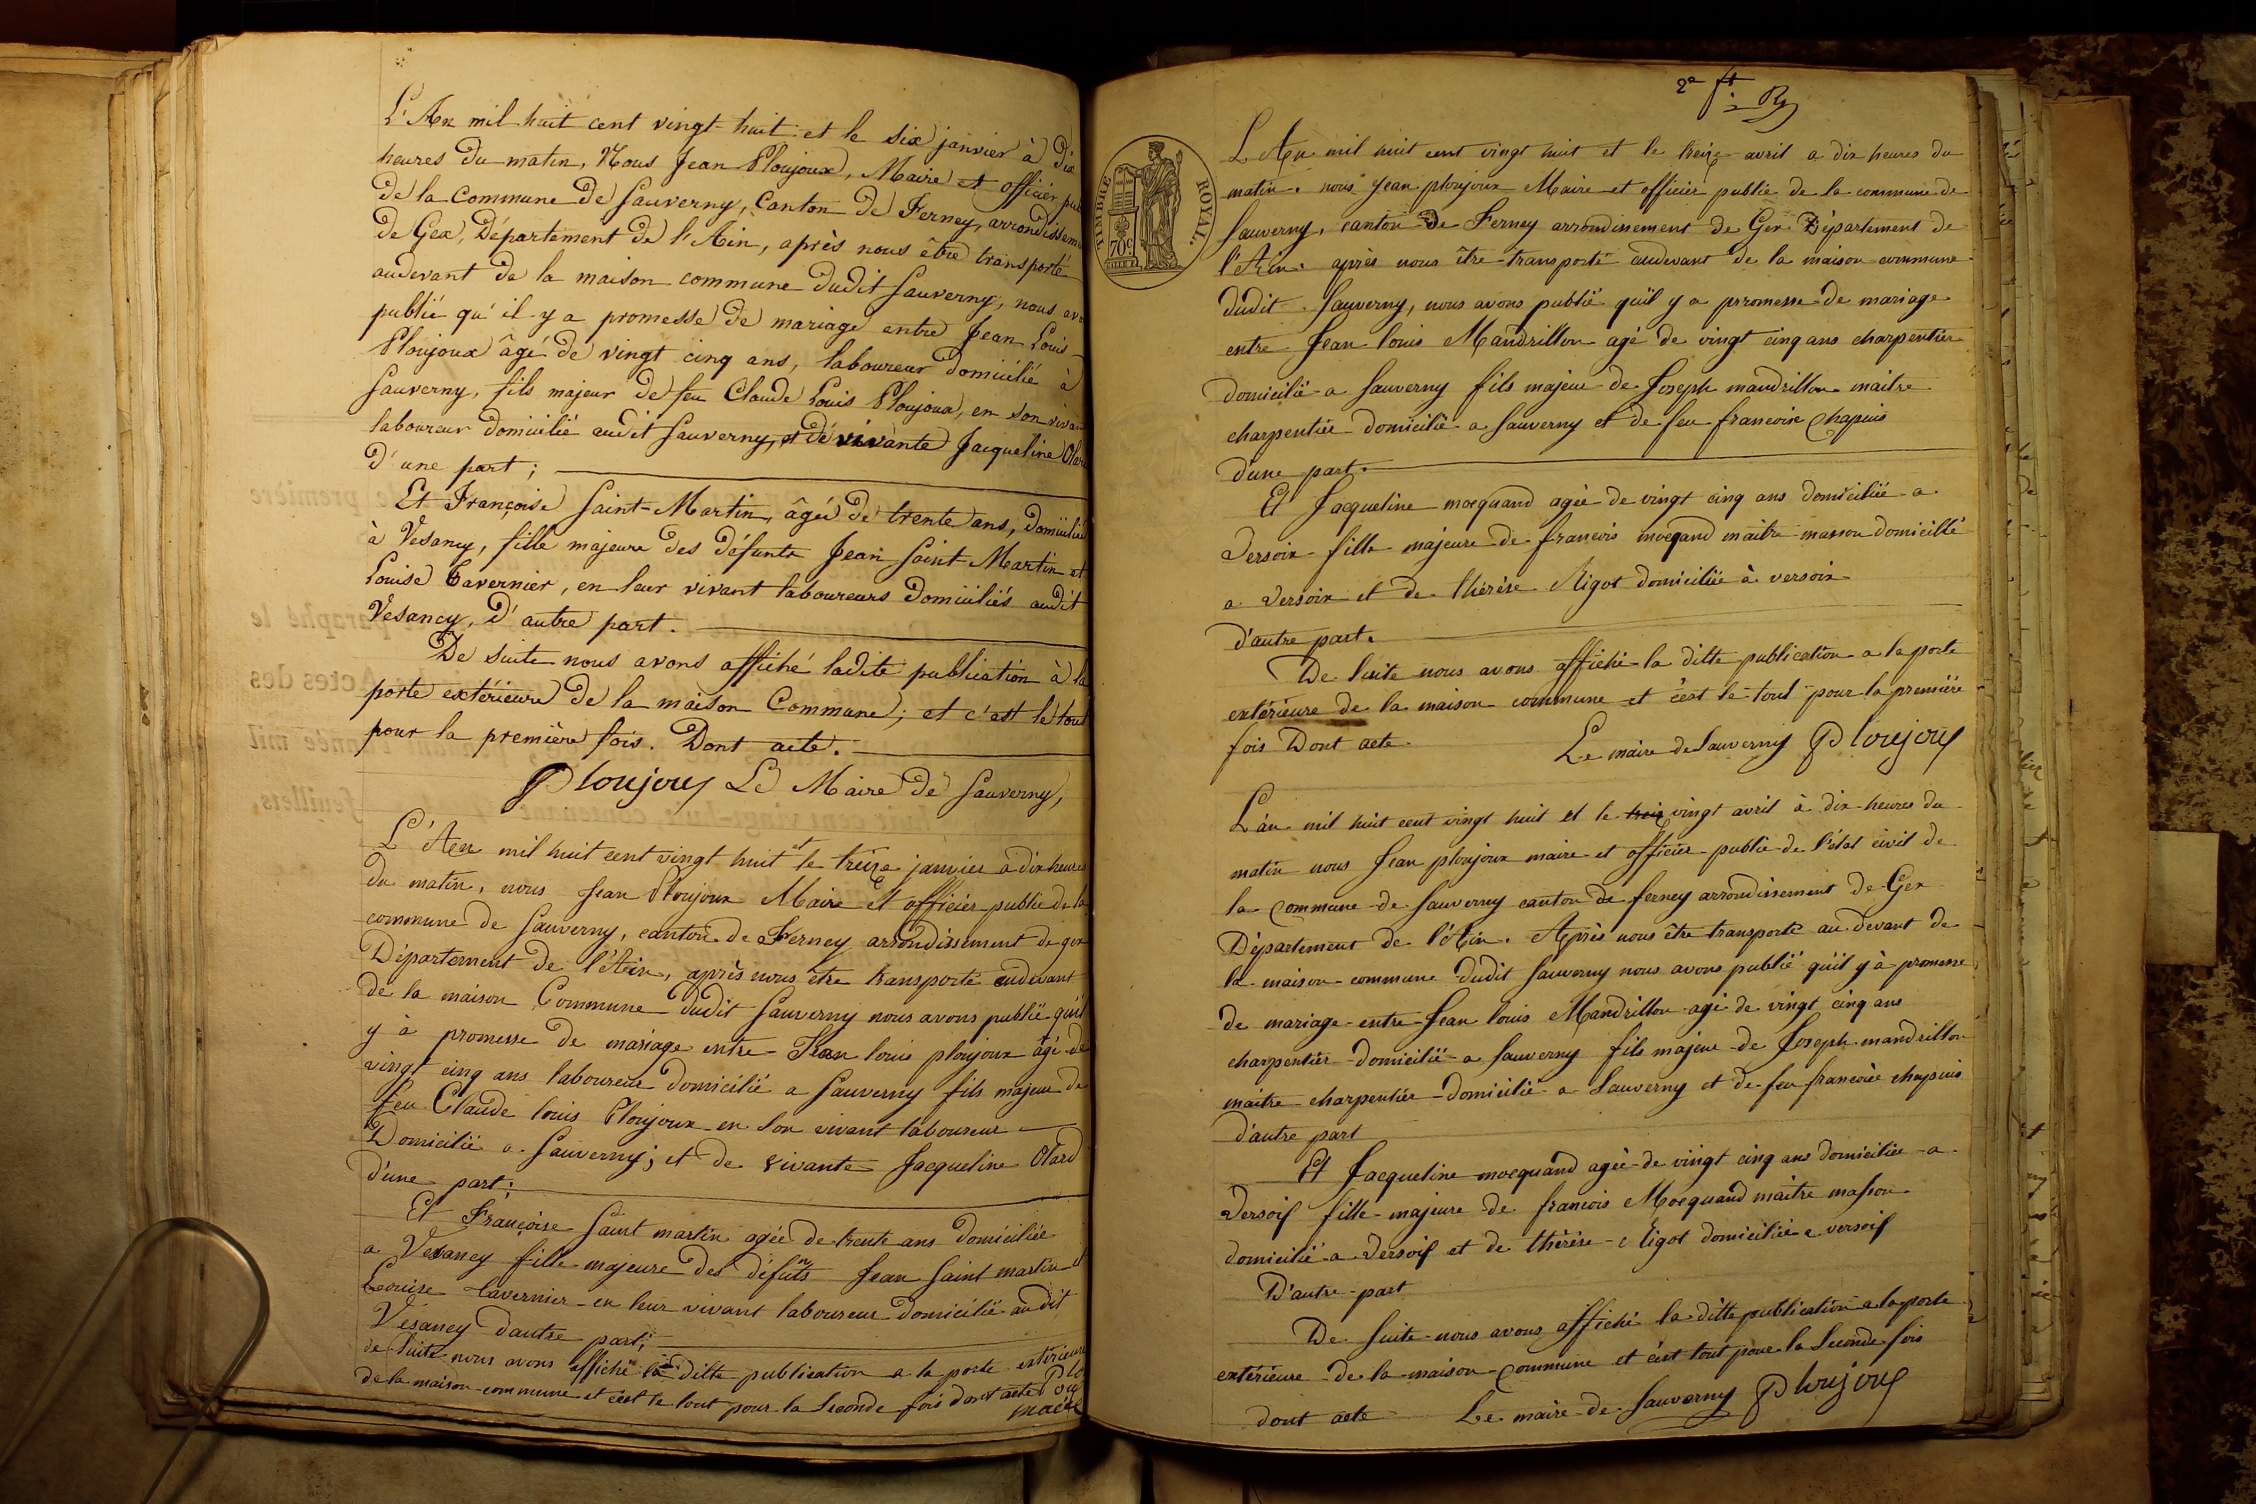 L'An mil huit cent vingt-huit et le six janvier à dix
heures du matin, Nous Jean Ploujoux, Maire et officier pub
de la commune de Sauverny, Canton de Ferney, arrondissem
de Gex, Département de l'Ain, après nous être transporté
audevant de la maison commune dudit Sauverny, nous avo
publié qu'il y a promesse de mariage entre Jean Louis
Ploujoux âgé de vingt cinq ans, laboureur domicilié à
Sauverny, fils majeur de feu Claude Louis Ploujoux, en son vivan
laboureur domicilié audit Sauverny, et de vivante Jacqueline Olard
d'une part;
Et Françoise Saint-Martin, âgée de trente ans, domiciliée
à Vesancy, fille majeure des défunts Jean Saint-Martin et
Louise Tavernier, en leur vivant laboureurs domiciliés audit
Vesancy, d'autre part.
De suite nous avons affiché ladite publication à la
porte extérieure de la maison Commune; et c'est le tout
pour la première fois. Dont acte.
Ploujoux Le Maire de Sauverny,
L'An mil huit cent vingt huit et le treize janvier a dix heures
du matin, nous Jean Ploujoux Maire et officier public de la
commune de Sauverny, canton de Ferney arrondissement de gex
Département de l'Ain, après nous être transporté audevant
de la maison Commune dudit Sauverny nous avons publié qu'il
y à promesse de mariage entre Jean louis ploujoux agé de
vingt cinq ans laboureur domicilié a Sauverny fils majeur de
feu Claude louis Ploujoux en son vivant laboureur
Domicilié a Sauverny; et de vivante Jacqueline Olard
d'une part;
Et Françoise Saint martin agée de trente ans domiciliée
a Vesancy fille majeure des défunts Jean Saint martin et
Louise tavernier en leur vivant laboureur domicilié audit
Vésancy d'autre part;
de Suite nous avons affiché la ditte publication a la porte extérieure
de la maison commune et c'est le tout pour la Seconde fois dont acte Plo
maire
2e ft
TIMBRE ROYAL.
70c
L'An mil huit cent vingt huit et le treize avril a dix heures du
matin. nous Jean ploujoux Maire et officier public de la commune de
Sauverny, canton de Ferney arrondissement de Gex Département de
l'Ain. après nous être transporté audevant de la maison commune
dudit Sauverny, nous avons publié qu'il y a prromesse de mariage
entre Jean louis Mandrillon agé de vingt cinq ans charpentier
domicilié a Sauverny fils majeur de Joseph mandrillon maitre
charpentier domicilié a Sauverny et de feu francoise Chapuis
d'une part.
Et Jacqueline mocquand agée de vingt cinq ans domiciliée a
Versoix fille majeure de francois mocqand maitre masson domicillé
a Versoix et de thérèse Rigot domiciliée à versoix
d'autre part.
De Suite nous avons affiché la ditte publication a la porte
extérieure de la maison commune et c'est le tout pour la première
fois Dont acte.
Le maire de Sauverny Ploujoux
L'an mil huit cent vingt huit et le treize vingt avril à dix heures du
matin nous Jean ploujoux maire et officier public de l'état civil de
la commune de Sauverny canton de ferney arrondissement de Gex
Département de l'Ain. Après nous être transporté au devant de
la maison commune dudit Sauverny nous avons publié qu'il y à promesse
de mariage entre Jean louis Mandrillon agé de vingt cinq ans
charpentier domicilié a Sauverny fils majeur de Joseph mandrillon
maitre charpentier domicilié a Sauverny et de feu francoise chapuis
d'autre part
Et Jacqueline mocquand agée de vingt cinq ans domiciliée a
Versoix fille majeure de francois Mocquand maitre masson
domicilié a Versoix et de thérèse Rigot domiciliée a versoix
D'autre part
De Suite nous avons affiché la ditte publication a la porte
extérieure de la maison commune et c'est tout pour la Seconde fois
dont acte Le maire de Sauverny Ploujoux